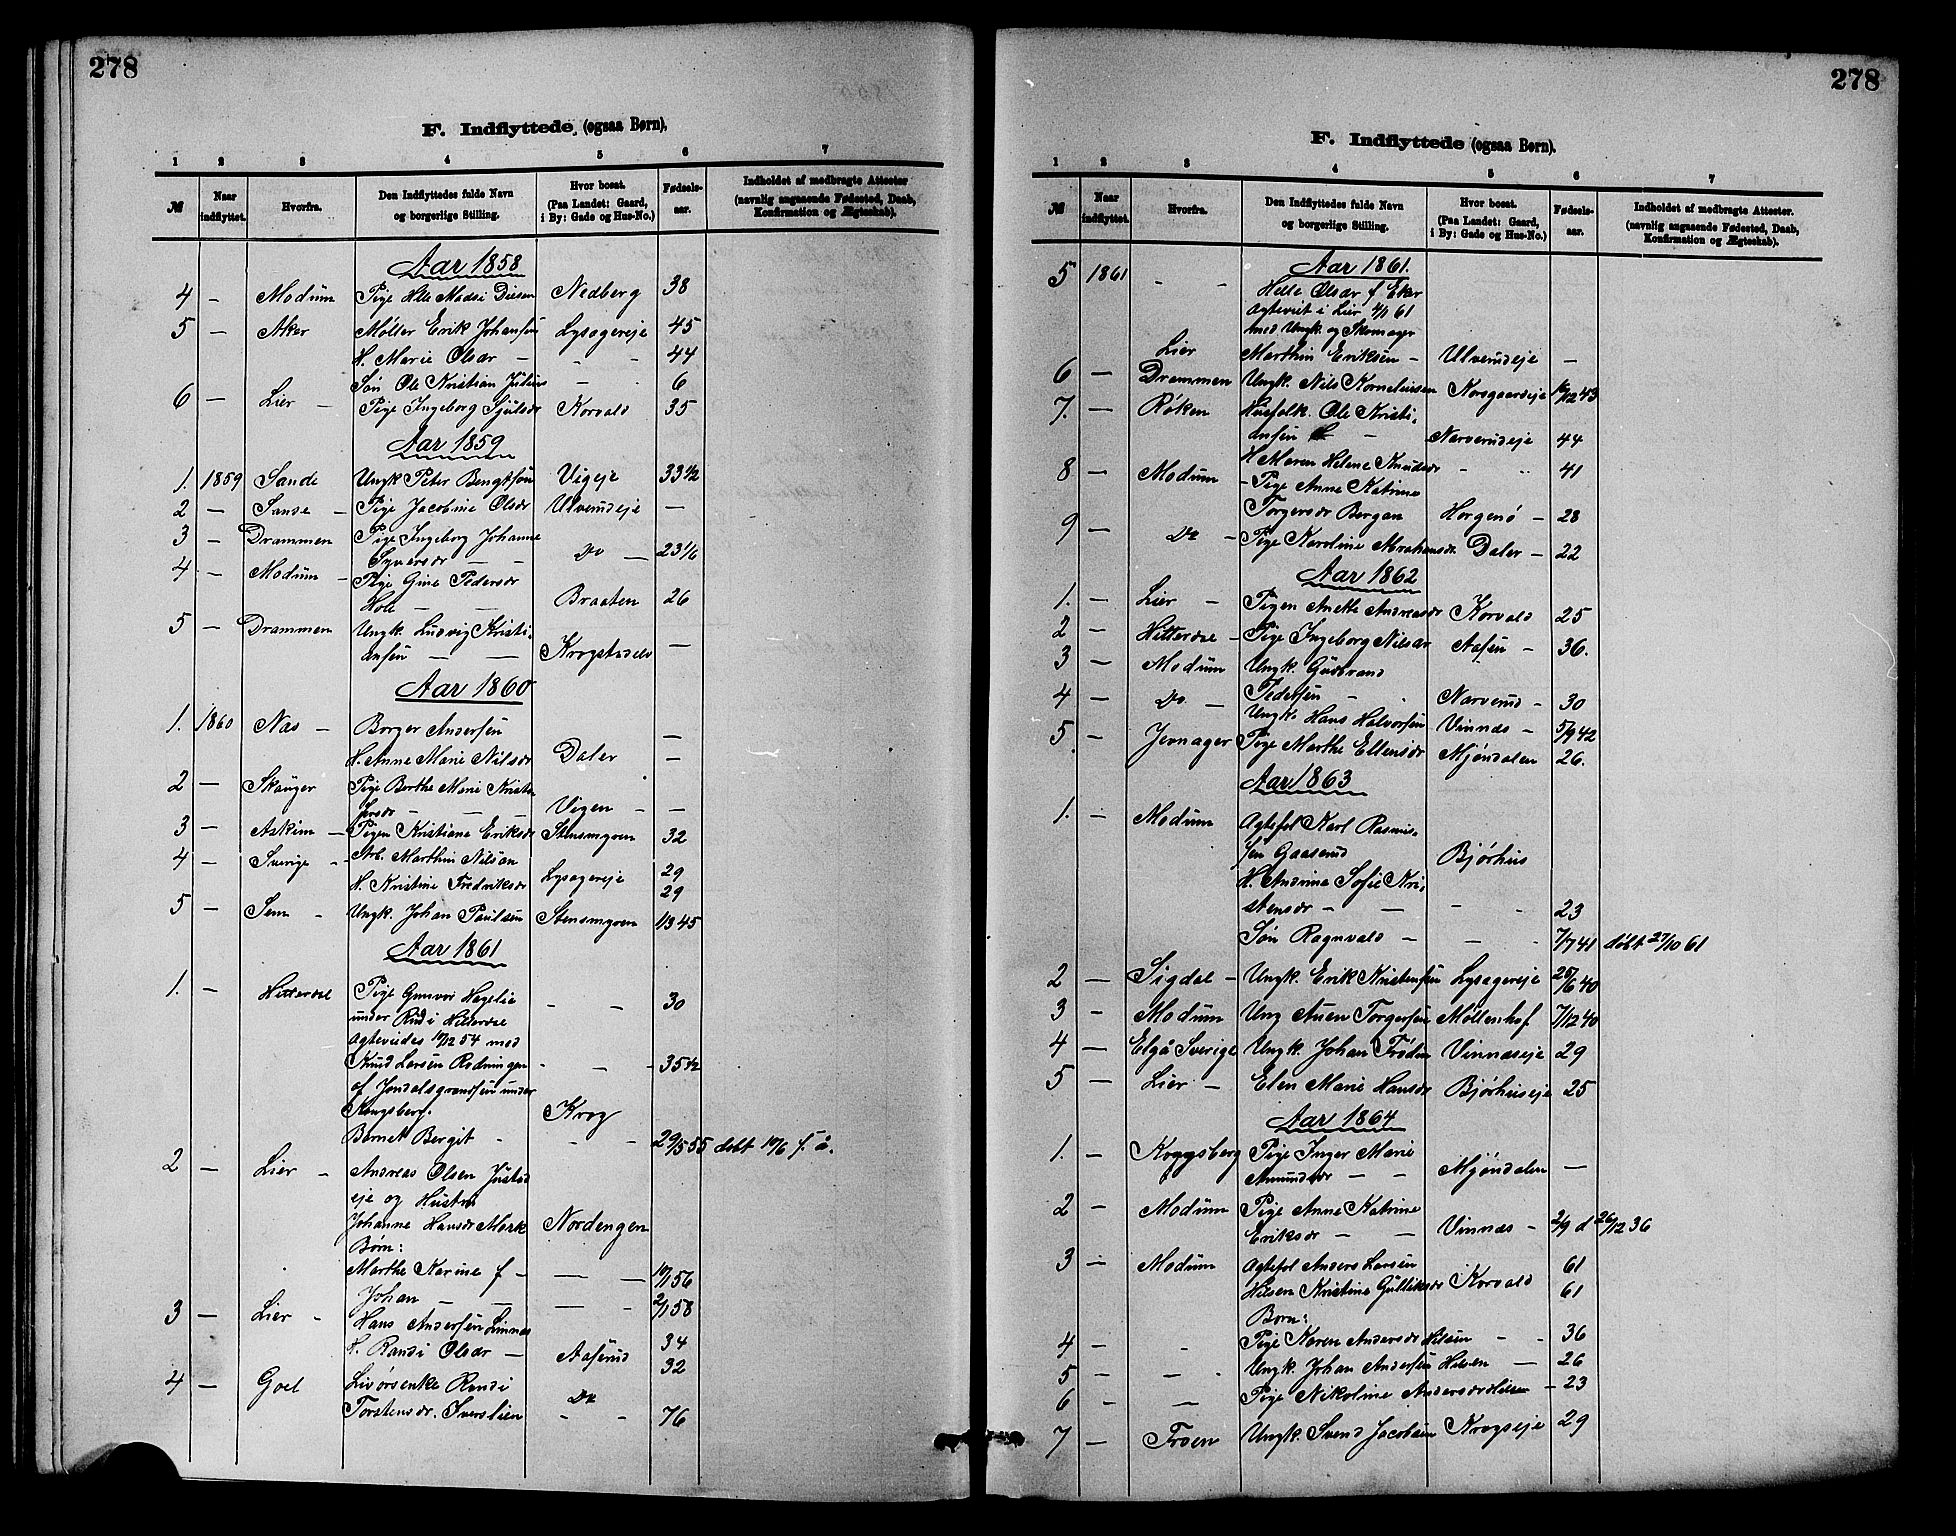 278
F. Indflyttede (ogsaa Børn).
1 2 3 4 5 6 7
№ Naar indflyttet. Hvorfra. Den Indflyttedes fulde Navn og borgerlige Stilling. Hvor bosat. (Paa Landet: Gaard, i By: Gade og Hus-No.) Fødsels-aar. Indholdet af medbragte Attester (navnlig angaaende Fødested, Daab, Konfirmation og Ægteskab).
Aar 1858
4 — Modum Pige Helle Madsi Diesen Nedberg 38
5 — Aker Møller Erik Johansen Lysagereje 45
H. Marie Olsdr — — — 44
Søn Ole Kristian Julius — — 6
6 — Lier — Pige Ingeborg Sjulsdr Korvald 35
Aar 1859
1. 1859 Sande Ungk Peter Bengtsøn Vigeje 33 1/2
2 — Sande — Pige Jacobine Olsdr Ulverudeje —
3 — Drammen Pige Ingeborg Johanne
Syversdr — — Do — 23 1/6
4 — Modum — Pige Gine Pedersdr
Hole — — Braaten 26
5 — Drammen Ungk. Ludvig Kristi-
ansen — — Krogstadelv —
Aar 1860
1. 1860 Nas — Borger Andersen —
H. Anne Marie Nilsdr Daler —
2 — Skauger Pige Berthe Marie Kristo
fersdr — — — Vigen — —
3 — Askim — Pigen Kristiane Eriksdr Stensmyren 32
4 — Sverige — Arb. Marthin Nilsøn 29
H. Kristine Fredriksdr Lysagereje 29
5 — Sem — Ungk. Johan Paulsen Stensmyren 1/3 45
Aar 1861
1. — Hitterdal Pige Gunvor Hægslie — — 30
under Rud i Hitterdal
Ægteviedes 19/12 54 med
Knud Larsen Rødningen — — — 35 1/2
af Jondalsgrændsen under
Kongsberg. Krog
Barnet Bergit — — — 29/5 55 døbt 17/6 s. å.
2 — Lier — Andreas Olsen Justad
eje og Hustru
Johanne Hansdr Mørk Nordengen
Børn:
Marthe Karine f — — — 19/1 56
Johan — — — — 2/1 58
3 — Lier — Hans Andersen Linnes 34
H. Randi Olsdr — Aaserud 32
4 — Goel Livørsenke Randi Do
Torstensdr. Iverslien — — 76
278
F. Indflyttede (ogsaa Børn).
1 2 3 4 5 6 7
№ Naar indflyttet. Hvorfra. Den Indflyttedes fulde Navn og borgerlige Stilling. Hvor bosat. (Paa Landet: Gaard, i By: Gade og Hus-No.) Fødsels-aar. Indholdet af medbragte Attester. (navnlig angaaende Fødested, Daab, Konfirmation og Ægteskab).
Aar 1861.
5 1861 — — Helle Olsdr f Eker
Ægteviet i Lier 4/1 61
med Ungk. og Skomager
Lier Marthin Eriksen — Ulverudeje —
6 — Drammen Ungk. Nils Korneliusen Norsgaardeje 16/12 43
7. — Røken Husfolk. Ole Kristi-
ansen — Narverudeje 44
H Maren Helene Knudsdr — — 41
8 — Modum — Pige Anne Katrine
Torgersdr Bergan Horgenø — 28
9 — Do — Pige Karoline Abrahamsdr Daler — 22
Aar 1862
1. — Lier — Pigen Anette Andreasdr Korvald 25
2 — Hitterdal — Pige Ingeborg Nilsdr Aasen — 36.
3 — Modum Ungk. Gudbrand
Pedersen — Narverud — 30
4 — Do — Ungk Hans Halvorsen Vinnæs — 5/9 42
5 — Jevnager Pige Marthe Ellensdr Mjøndalen 26.
Aar 1863
1. — Modum Ægtefol Karl Rasmus-
sen Gaaserud Bjørhus
H. Andrine Sofie Kri-
stensdr — — — — 23
Søn Ragnvald — — — 7/7 41 døbt 27/10 61
2 — Sigdal — Ungk. Erik Kristensen Lysagereje 25/6 40
3 — Modum Ung Auen Torgersen Møllenhof 7/12 40
4 — Elgå Sverige Ungk. Johan Frødin Vinnæseje 29
5 — Lier — Elen Marie Hansdr Bjørhuseje 25
Aar 1864
1. — Koggsberg Pige Inger Marie
Amundsdr — — Mjøndalen —
2 — Modum Pige Anne Katrine
Eriksdr — — Vinnæs — 2/9 d 26/12 36
3 — Modum Ægtefol Anders Larsen 61
Hilsen Kristine Gulliksdr Korvald 61
Børn:
4 — — Pige Karen Andersdr Hilsen — — 36
5 — — Ungk. Johan Andersen Hilsen — 26
6 — — Pige Nikoline Andersdr Hilsen — 23
7 — Froen Ungk. Svend Jacobsen Krogseje 29